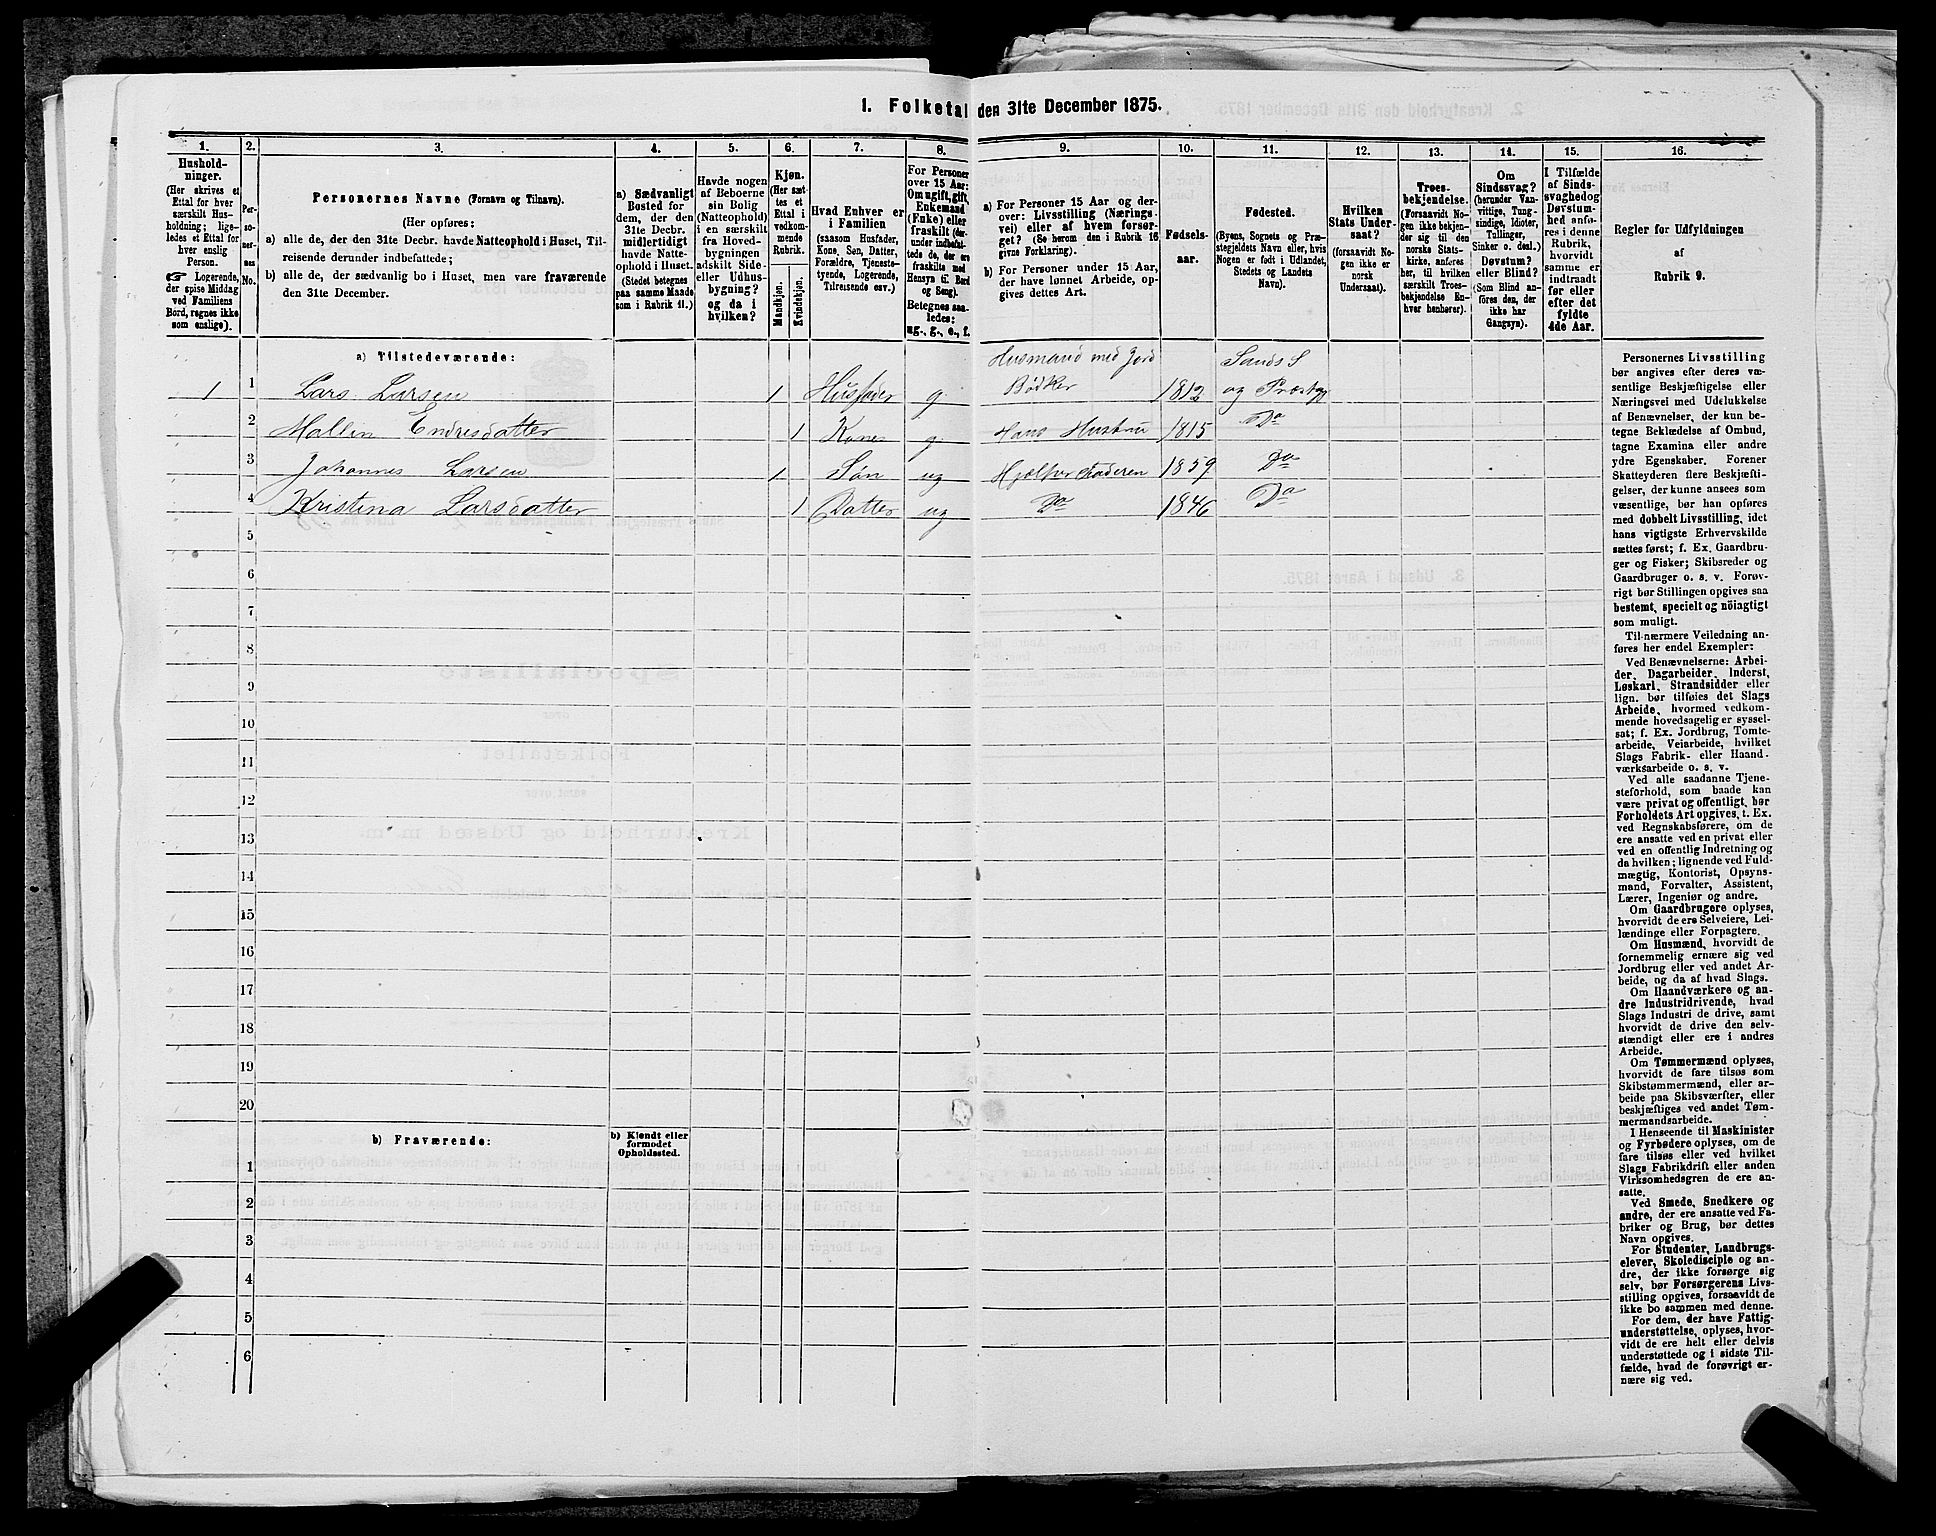 1. Folketal den 31te December 1875.
1.
2.
3.
4.
5.
6.
7.
8.
9.
10.
11.
12.
13.
14.
15.
16.
Hushold-
ninger.
(Her skrives et
Ettal for hver
særskilt Hus-
holdning; lige-
ledes et Ettal for
hver enslig
Person.
☞ Logerende,
der spise Middag
ved Familiens
Bord, regnes ikke
som enslige).
Per-
so-
ner-
nes
No.
Personernes Navne (Fornavn og Tilnavn).
(Her opføres:
a) alle de, der den 31te Decbr. havde Natteophold i Huset, Til-
reisende derunder indbefattede;
b) alle de, der sædvanlig bo i Huset, men vare fraværende
den 31te December.
a) Sædvanligt
Bosted for
dem, der den
31te Decbr.
midlertidigt
havde Natte-
ophold i Huset.
(Stedet betegnes
paa samme Maade
som i Rubrik 11.)
Havde nogen
af Beboerne
sin Bolig
(Natteophold)
i en særskilt
fra Hoved-
bygningen
adskilt Side-
eller Udhus-
bygning?
og da i
hvilken?
Kjøn.
(Her sæt-
tes et
Ettal i
vedkom-
mende
Rubrik.
Mandkjøn.
Kvindekjøn.
Hvad Enhver er
i Familien
(saasom Husfader,
Kone, Søn, Datter,
Forældre, Tjeneste-
tyende, Logerende,
Tilreisende osv.)
For Personer
over 15 Aar:
Om ugift, gift,
Enkemand
(Enke) eller
fraskilt (der-
under indbefat-
tede de, der ere
fraskilte med
Hensyn til Bord
og Seng).
Betegnes saa-
ledes:
ug., g., e., f.
a) For Personer 15 Aar og der-
over: Livsstilling (Nærings-
vei) eller af hvem forsør-
get? (Se herom den i Rubrik 16
givne Forklaring).
b) For Personer under 15 Aar,
der have lønnet Arbeide, op-
gives dettes Art.
Fødsels-
aar.
Fødested.
(Byens, Sognets og Præ-
stegjeldets Navn eller, hvis
Nogen er født i Udlandet,
Stedets og Landets
Navn).
Hvilken
Stats Under-
saat?
(forsaavidt No-
gen ikke er
norsk
Undersaat).
Troes-
bekjendelse.
(Forsaavidt No-
gen ikke bekjen-
der sig til den
norske Stats-
kirke, anføres
her, til hvilken
særskilt Troes-
bekjendelse En-
hver henhører).
Om
Sindssvag?
(herunder Van-
vittige, Tung-
sindige, Idioter,
Tullinger,
Sinker o. desl.)
Døvstum?
eller Blind?
(Som Blind an-
føres den, der
ikke har
Gangsyn).
I Tilfælde
af Sinds-
svaghed og
Døvstum-
hed anfø-
res i denne
Rubrik,
hvorvidt
samme er
indtraadt
før eller
efter det
fyldte
4de Aar.
Regler for Udfyldningen
af
Rubrik 9.
a) Tilstedeværende:
1 1 Lars Larsen 1 Husfader g. Husmand med Jord Bødker 1812 Sands S og Præstg
2 Mallin Endresdatter 1 Kone g. Hans Hustru 1815 Do
3 Johannes Larsen 1 Søn ug Hjælper Faderen 1859 Do
4 Kristina Larsdatter 1 Datter ug Do 1846 Do
5
6
7
8
9
10
11
12
13
14
15
16
17
18
19
20
b) Fraværende:
b) Kjendt eller
formodet
Opholdssted.
1
2
3
4
5
6
Personernes Livsstilling
bør angives efter deres væ-
sentlige Beskjæftigelse eller
Næringsvei med Udelukkelse
af Benævnelser, der kun be-
tegne Beklædelse af Ombud,
tagne Examina eller andre
ydre Egenskaber. Forener
Skatteyderen flere Beskjæfti-
gelser, der kunne ansees som
væsentlige, bør han opføres
med dobbelt Livsstilling, idet
hans vigtigste Erhvervskilde
sættes først; f. Ex. Gaardbru-
ger og Fisker; Skibsreder og
Gaardbruger o. s. v. Forøv-
rigt bør Stillingen opgives saa
bestemt, specielt og nöiagtigt
som muligt.
Til nærmere Veiledning an-
føres her endel Exempler:
Ved Benævnelserne: Arbei-
der, Dagarbeider, Inderst,
Løskarl, Strandsidder eller
lign. bør tilføies det Slags
Arbeide, hvormed vedkom-
mende hovedsagelig er syssel-
sat; f. Ex. Jordbrug, Tomte-
arbeide, Veiarbeide, hvilket
Slags Fabrik- eller Haand-
værksarbeide o. s. v.
Ved alle saadanne Tjene-
steforhold, som baade kan
være privat og offentligt, bør
Forholdets Art opgives, t. Ex.
ved Regnskabsførere, om de
ere ansatte ved en privat eller
ved en offentlig Indretning og
da hvilken; lignende ved Fuld-
mægtig, Kontorist, Opsyns-
mand, Forvalter, Assistent,
Lærer, Ingeniør og andre.
Om Gaardbrugere oplyses,
hvorvidt de ere Selveiere, Lei-
lændinge eller Forpagtere.
Om Husmænd, hvorvidt de
fornemmelig ernære sig ved
Jordbrug eller ved andet Ar-
beide, og da af hvad Slags.
Om Haandværkere og an-
dre Industridrivende, hvad
Slags Industri de drive, samt
hvorvidt de drive den selv-
stændigt eller ere i andres
Arbeide.
Om Tømmermænd oplyses,
hvorvidt de fare tilsøs som
Skibstømmermænd, eller ar-
beide paa Skibsværfter, eller
beskjæftiges ved andet Tøm-
mermandsarbeide.
I Henseende til Maskinister
og Fyrbødere oplyses, om de
fare tilsøs eller ved hvilket
Slags Fabrikdrift eller anden
Virksomhedsgren de ere an-
satte.
Ved Smede, Snedkere og
andre, der ere ansatte ved Fa-
briker og Brug, bør dettes
Navn opgives.
For Studenter, Landbrugs-
elever, Skoledisciple og an-
dre, der ikke forsørge sig
selv, bør Forsørgerens Livs-
stilling opgives, forsaavidt de
ikke bo sammen med denne.
For dem, der have Fattig-
understøttelse, oplyses, hvor-
vidt de ere helt eller delvis
understøttede og i sidste Til-
fælde, hvad de forøvrigt er-
nære sig ved.